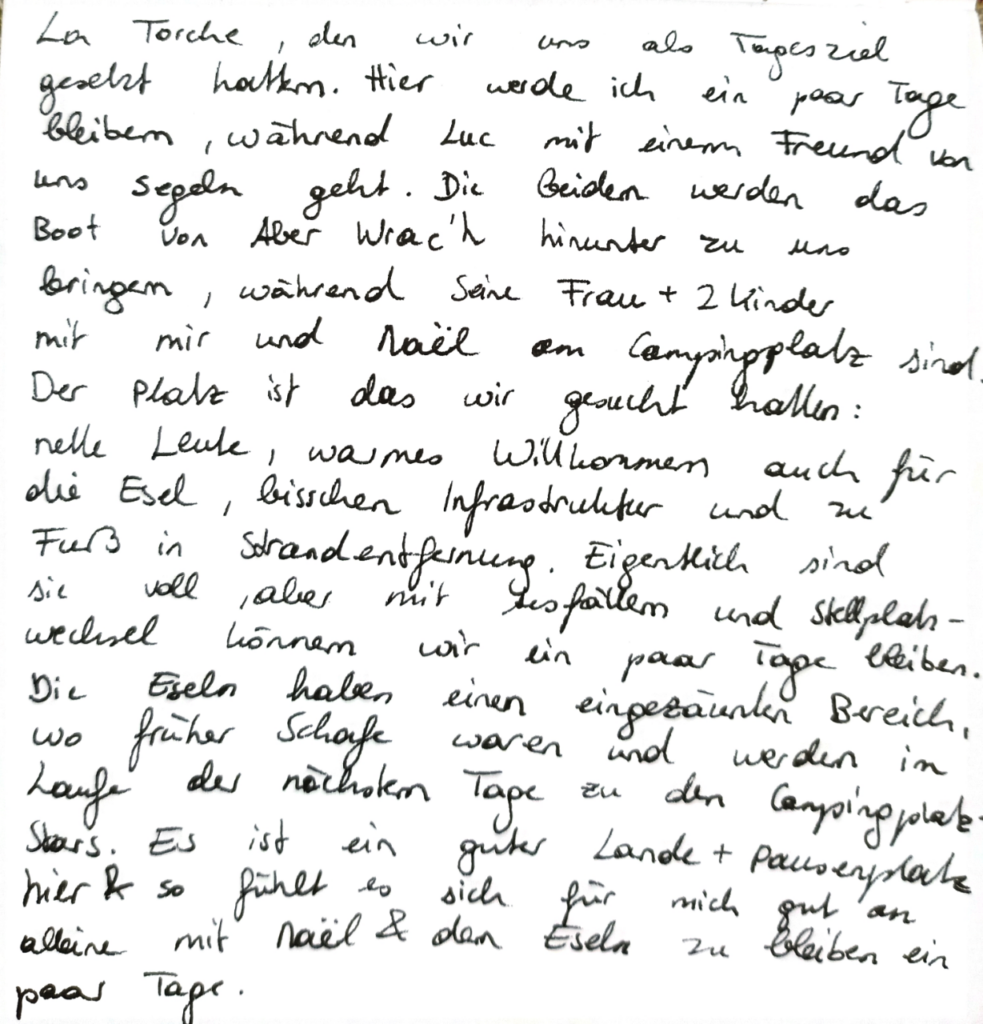 La Torche, den wir uns als Tagesziel
gesetzt hatten. Hier werde ich ein paar Tage
bleiben, während Luc mit einem Freund von
uns segeln geht. Die beiden werden das
Boot von Aber Wrac'h hinunter zu uns
bringen, während seine Frau + 2 Kinder
mit mir und Naël am Campingplatz sind.
Der Platz ist das wir gesucht hatten:
nette Leute, warmes Willkommen auch für
die Esel, bisschen Infrastruktur und zu
Fuß in Strandentfernung. Eigentlich sind
sie voll, aber mit Ausfällen und Stellplatz-
wechsel können wir ein paar Tage bleiben.
Die Eseln haben einen eingezäunten Bereich,
wo früher Schafe waren und werden im
Laufe der nächsten Tage zu den Campingplatz-
Stars. Es ist ein guter Lande + Pausenplatz
hier & so fühlt es sich für mich gut an
alleine mit Naël & den Eseln zu bleiben ein
paar Tage.